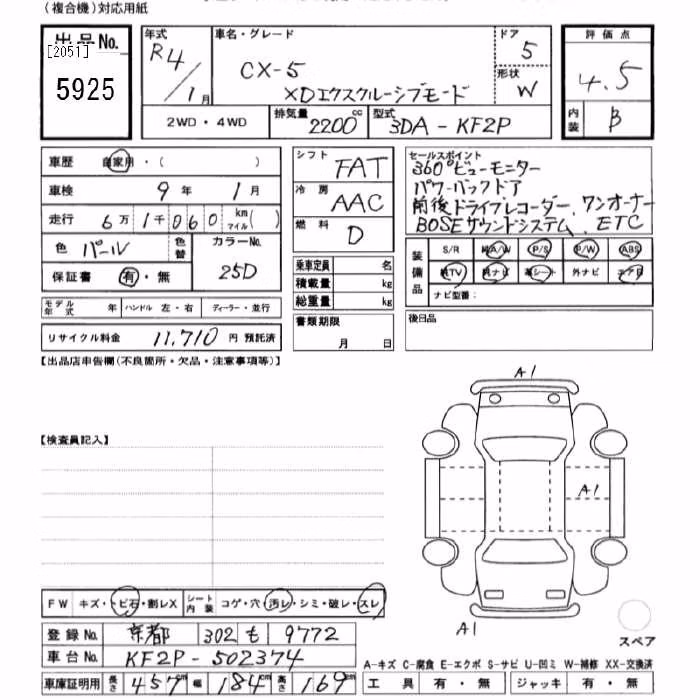 (複合機)対応用紙
出品No.
[2051]
5925
年式 R4/1月
車名・グレード
CX-5
XDエクスクルーシブモード
ドア 5
形状 W
評価点
4.5
内装 B
2WD・4WD 排気量 2200 cc 型式 3DA-KF2P
車歴 自家用・( )
車検 9年 1月
走行 6万1千060 km マイル( )
色 パール 色替 カラーNo. 25D
保証書 有・無
モデル年式 年 ハンドル 左・右 ディーラー・並行
リサイクル料金 11,710 円 預託済
シフト FAT
冷房 AAC
燃料 D
乗車定員 名
積載量 kg
総重量 kg
書類期限
月 日
セールスポイント
360°ビューモニター
パワーバックドア
前後ドライブレコーダー、ワンオーナー
BOSEサウンドシステム、ETC
装備品
S/R 純A/W P/S P/W ABS
純TV 純ナビ 革シート 外ナビ エアB
ナビ型番:
後日品
【出品店申告欄(不良箇所・欠品・注意事項等)】
【検査員記入】
A1
A1
A1
スペア
FW キズ・トビ石・割レX シート内装 コゲ・穴・汚レ・シミ・破レ・スレ
登録No. 京都 302 も 9772
車台No. KF2P-502374
車庫証明用 長さ 457 幅 184cm 高さ 169cm
A-キズ C-腐食 E-エクボ S-サビ U-凹ミ W-補修 XX-交換済
工具 有・無 ジャッキ 有・無